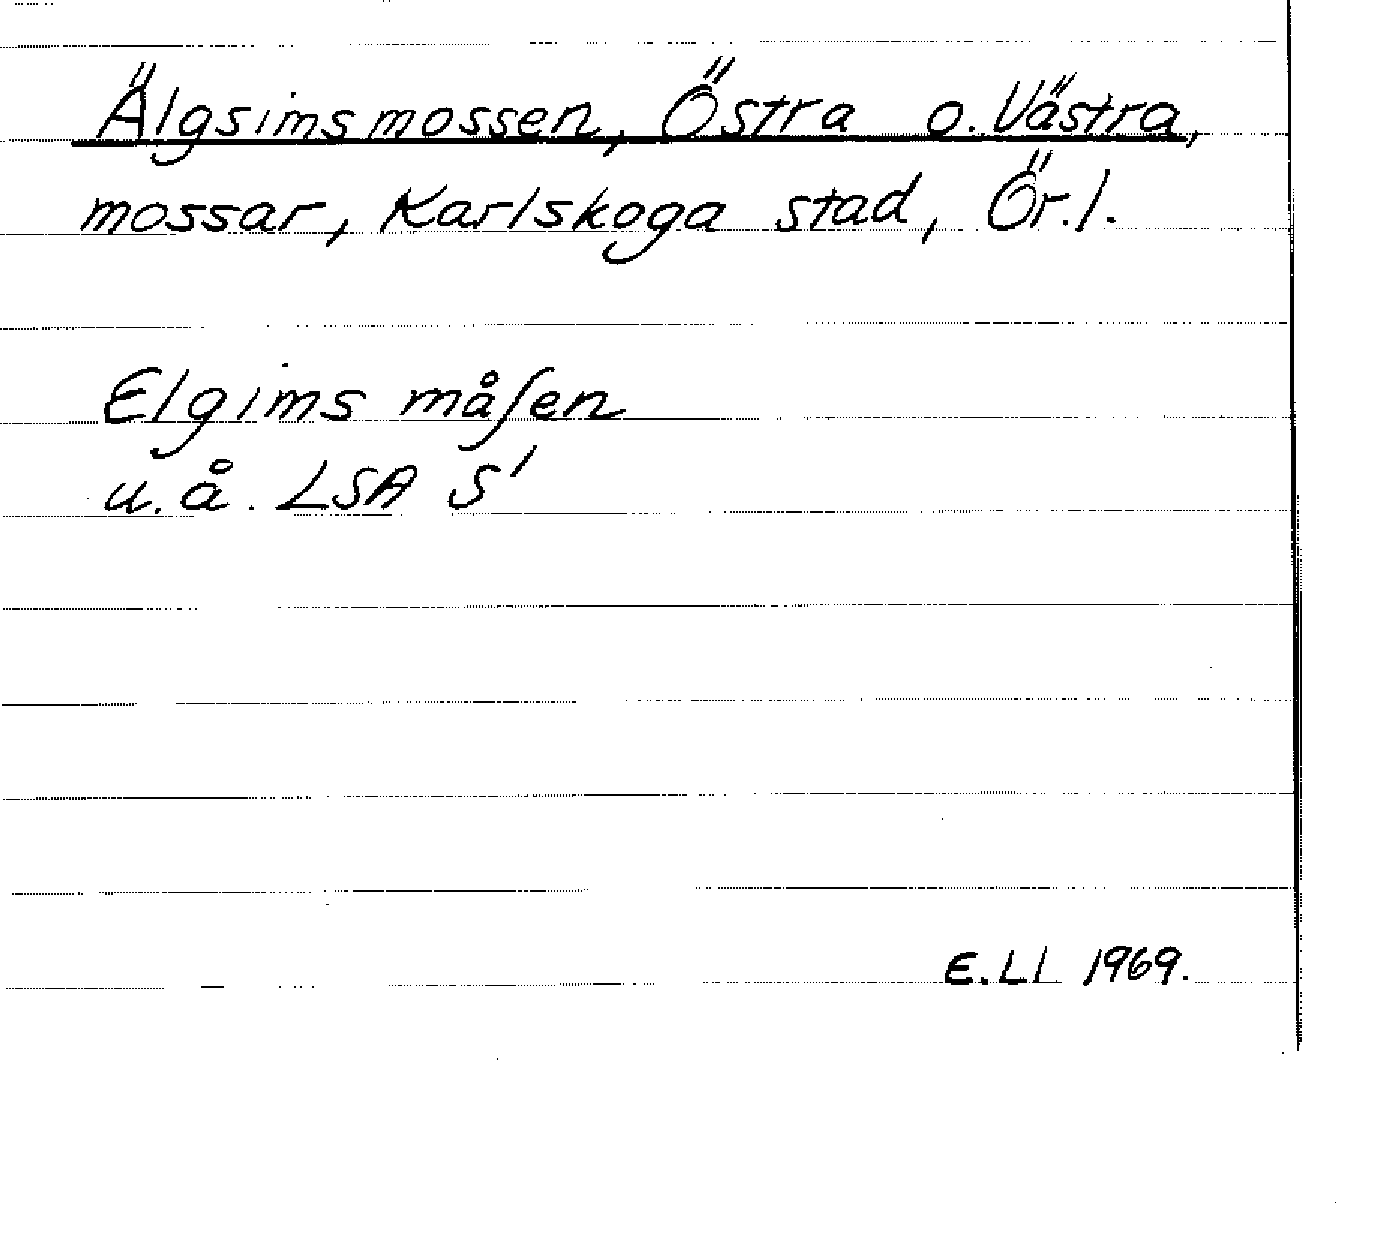 Älgsimsmossen, Östra o. Västra,
mossar, Karlskoga stad, Ör.l.
Elgims måſen
u.å. LSA S'
E.Ll 1969.